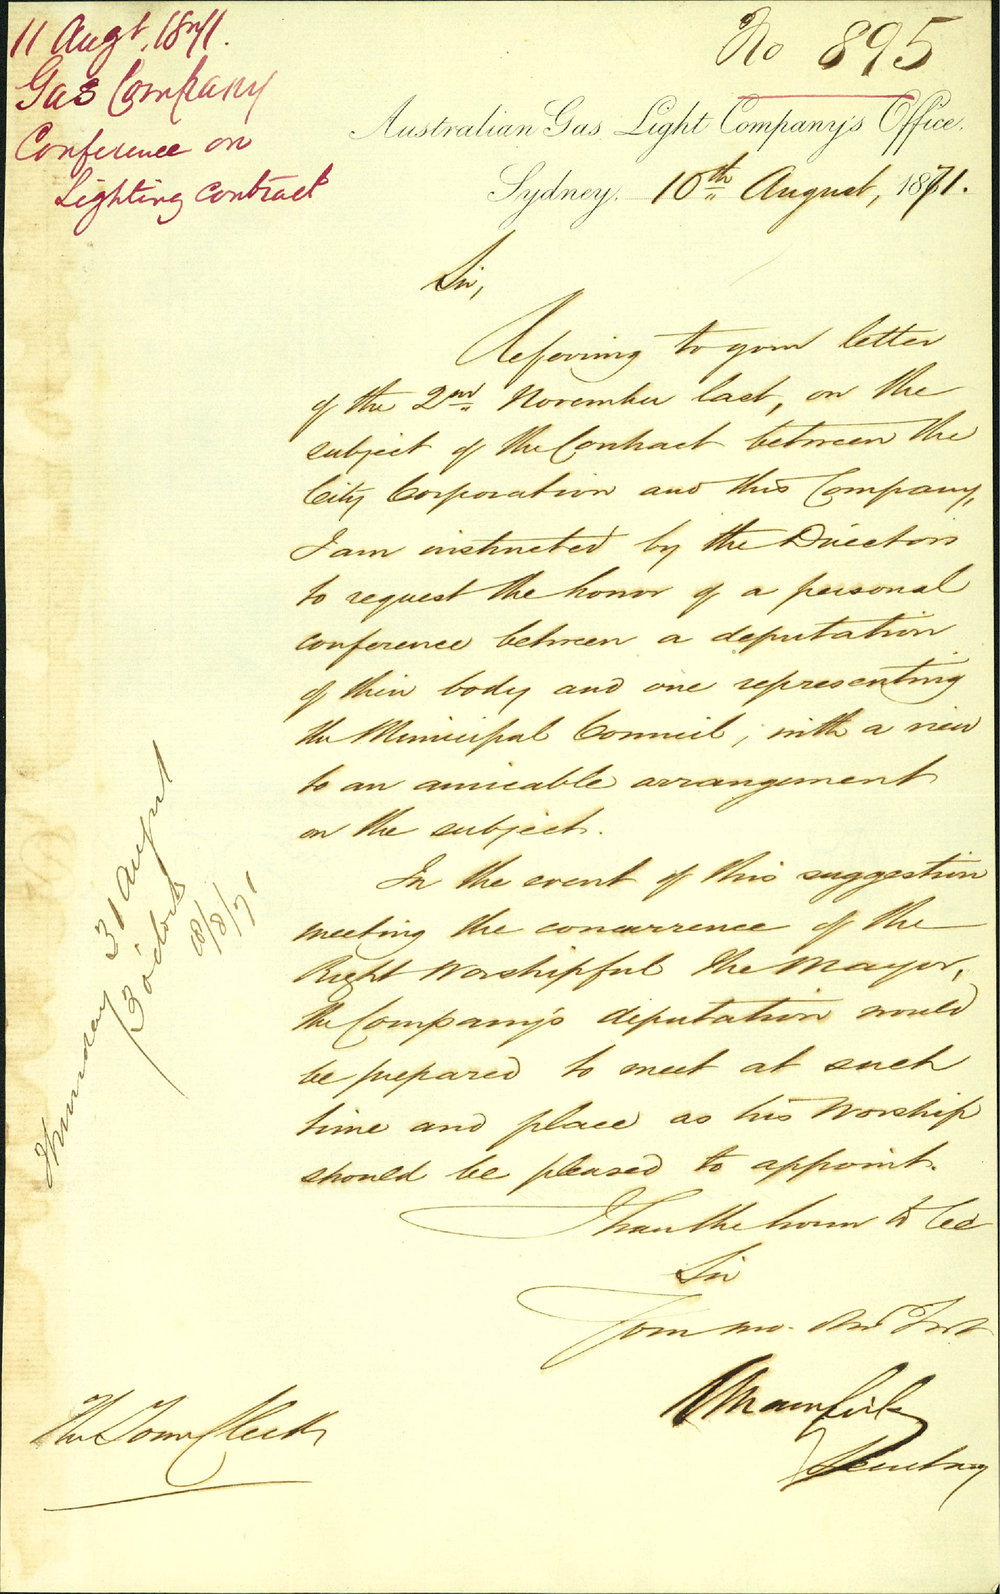 11 Augt. 1871.
Gas Company
Conference on
Lighting contract
No 895
Australian Gas Light Company's Office.
Sydney, 10th August, 1871.
Sir,
Referring to your letter
of the 2nd November last, on the
subject of the Contract between the
City Corporation and this Company,
I am instructed by the Directors
to request the honor of a personal
conference between a deputation
of their body and one representing
the Municipal Council, with a view
to an amicable arrangement
on the subject.
In the event of this suggestion
meeting the concurrence of the
Right Worshipful the Mayor,
the Company's deputation would
be prepared to meet at such
time and place as his Worship
should be pleased to appoint.
I have the honor to be
Sir
Your mo. Obt Svt
Secretary
The Town Clerk
Thursday 31 August
3 o'clock
18/8/71